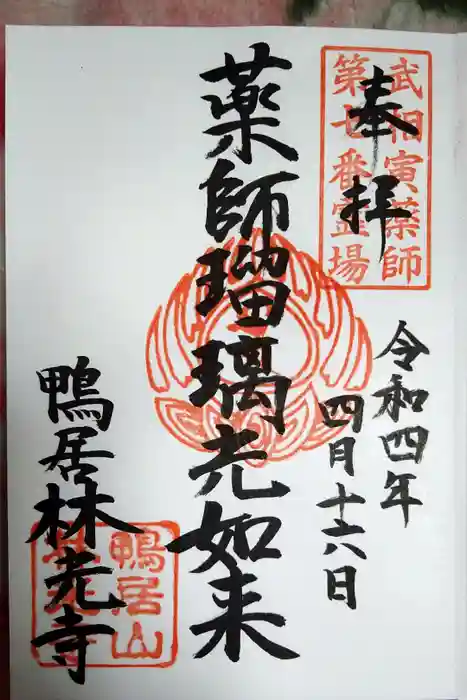 武相寅薬師
第七番霊場
奉拝
令和四年
四月十六日
薬師瑠璃光如来
鴨居林光寺
鴨居山